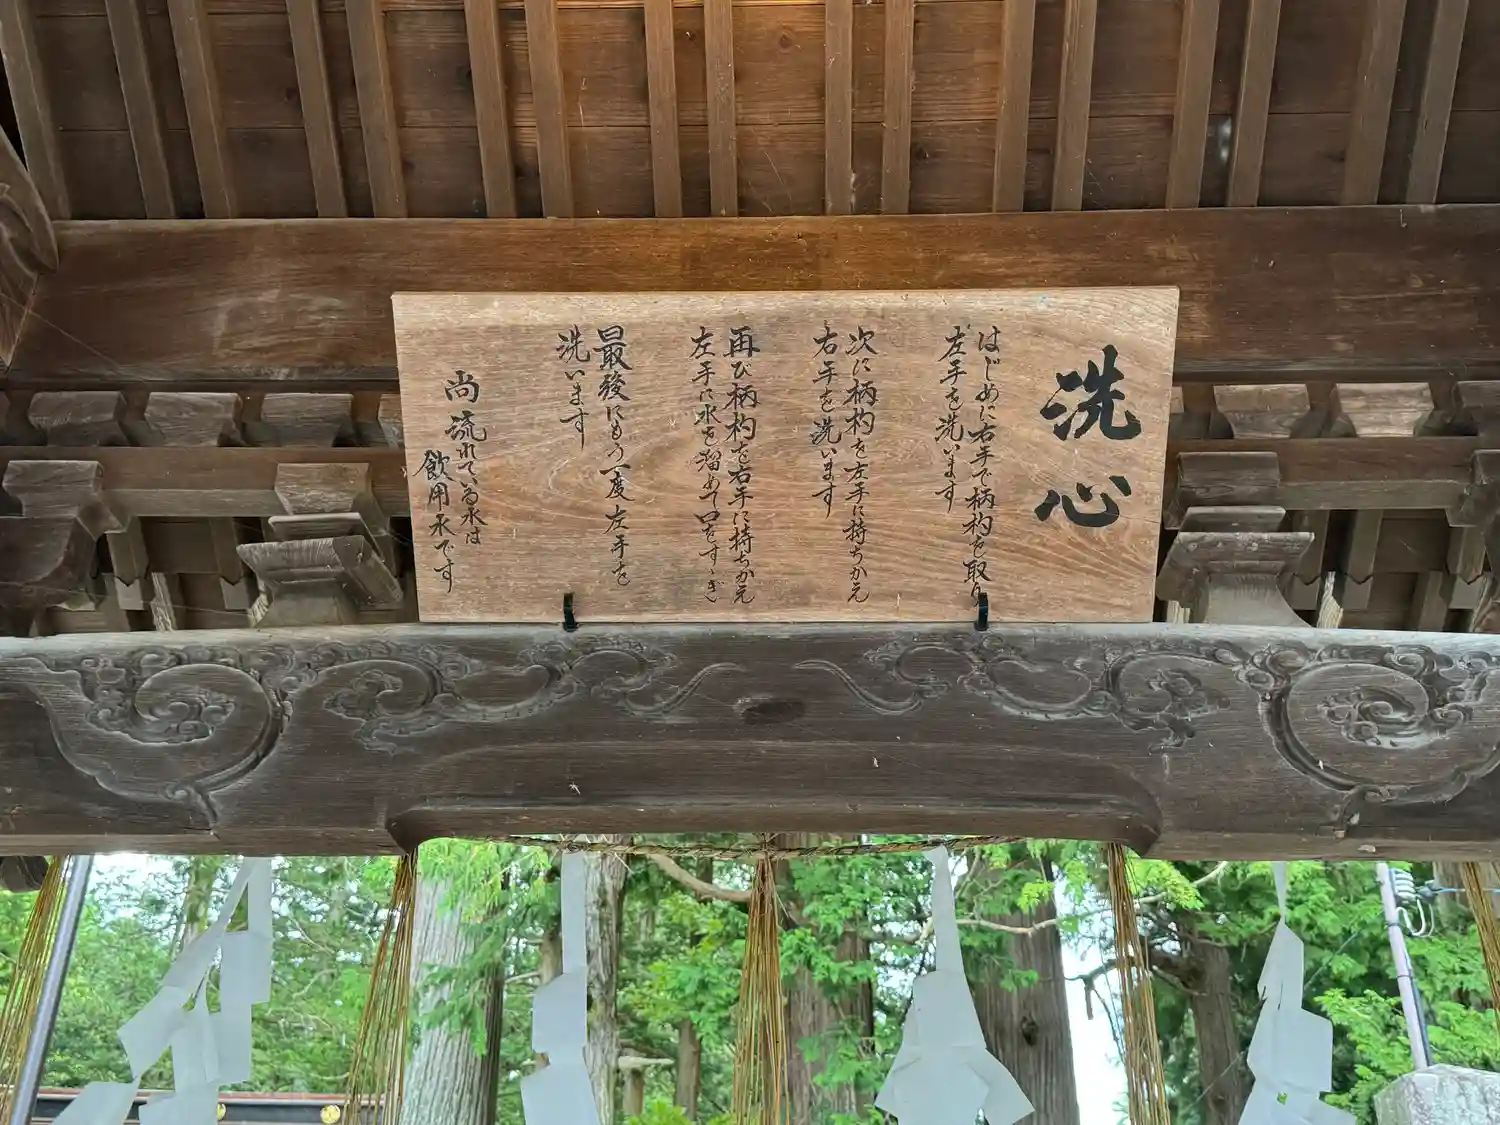 洗心
はじめに右手で柄杓を取り
左手を洗います
次に柄杓を左手に持ちかえ
右手を洗います
再び柄杓を右手に持ちかえ
左手に水を溜めて口をすゝぎ
最後にもう一度左手を
洗います
尚流れている水は
飲用水です